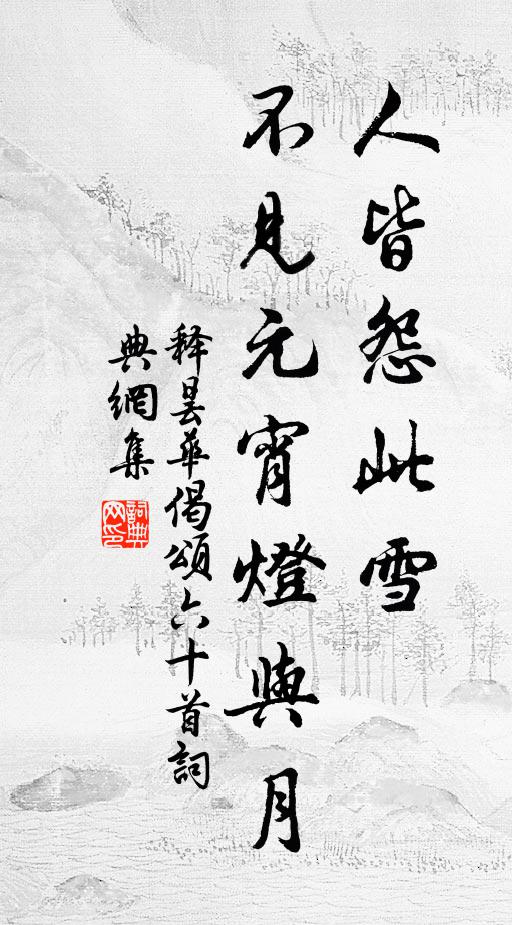 人皆怨此雪
不見元宵燈與月
释曇華偈頌六十首詞
典網集
詞典
网印